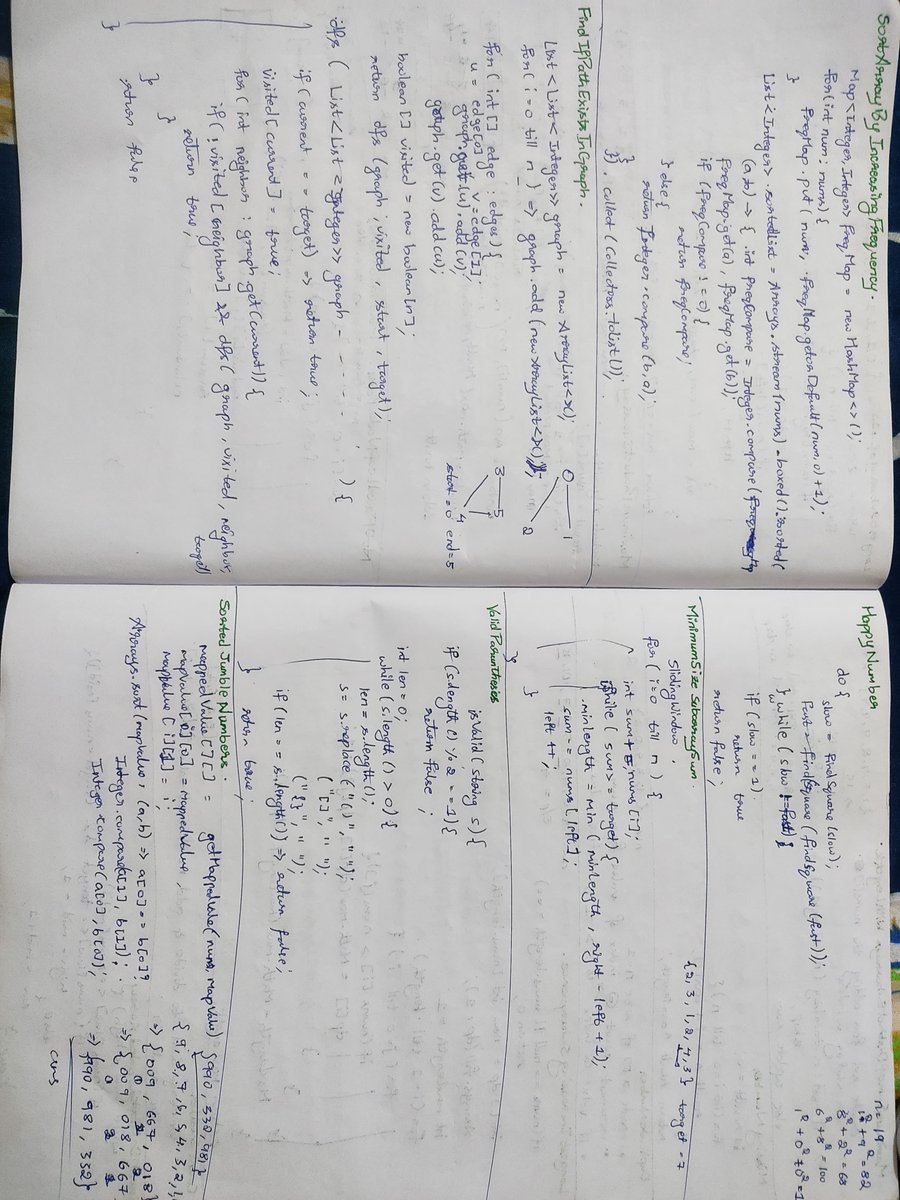 Sort Array By Increasing Frequency.
Map<Integer, Integer> freqMap = new HashMap<>();
for(int num : nums){
freqMap.put(num, freqMap.getorDefault(num,0)+1);
}
List<Integer> sortedList = Arrays.stream(nums).boxed().sorted(
(a,b) -> { int freqCompare = Integer.compare(
freqMap.get(a), freqMap.get(b));
if (freqCompare != 0) {
return freqCompare;
} else {
return Integer.compare(b,a);
}
}).collect(Collectors.toList());
Find If Path Exists In Graph.
List<List<Integer>> graph = new ArrayList<>();
for( i=0 till n ) => graph.add(new ArrayList<>());
for( int[] edge : edges) {
u = edge[0] v = edge[1];
graph.get(u).add(v);
graph.get(v).add(u);
boolean[] visited = new boolean[n];
return dfs (graph, visited, start, target);
0 1
2
3 5
4
start = 0 end = 5
dfs ( List<List<Integer>> graph - - - - ) {
if (current == target) => return true;
visited[current] = true;
for( int neighbor : graph.get(current)) {
if(!visited[neighbor] && dfs( graph, visited, neighbor,
target)
return true;
}
}
return false
}
Happy Number
do {
slow = findSquare(slow);
fast = findSquare(findSquare(fast));
} while (slow != fast);
if (slow == 1)
return true
return false;
n = 19
1² + 9² = 82
8² + 2² = 68
6² + 8² = 100
1² + 0² + 0² = 1
Minimum Size Subarray Sum
Sliding Window
{2, 3, 1, 2, 4, 3} target = 7
for( i=0 till n) {
int sum += nums[i];
while ( sum >= target) {
minlength = min (minlength, right - left + 1);
sum -= nums[left];
left ++;
}
}
Valid Parantheses
isValid(String s) {
if (s.length() % 2 == 1) {
return false;
int len = 0;
while (s.length() > 0) {
len = s.length();
s = s.replace("()", "");
("[]", "");
("{}", "");
if (len == s.length()) => return false;
return true;
}
Sorted Jumble Numbers.
mappedValue[][] = getMapValue(nums, mapValue)
mapValue[i][0] = mappedValue,
mapValue[i][1] = i;
Arrays.sort(mapValue, (a,b) => a[0] == b[0]?
Integer.compare(a[1], b[1]);
Integer.compare(a[0], b[0]);
{990, 332, 981}
{9, 8, 7, 6, 5, 4, 3, 2, 1,
=> {009, 667, 018}
=> {009, 018, 667
=> {990, 981, 332}
ans